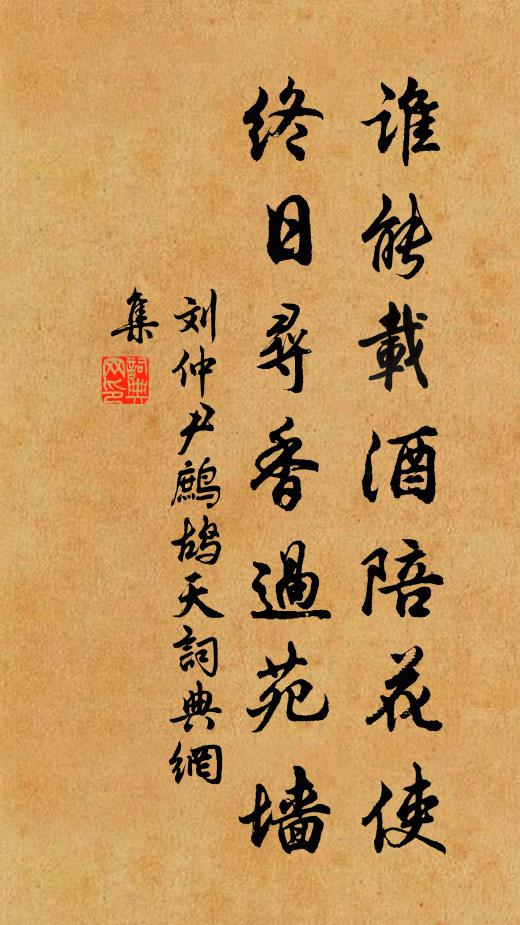 谁能載酒陪花使
終日尋香過苑墙
刘仲尹鷓鴣天詞典網
集
詞典网印